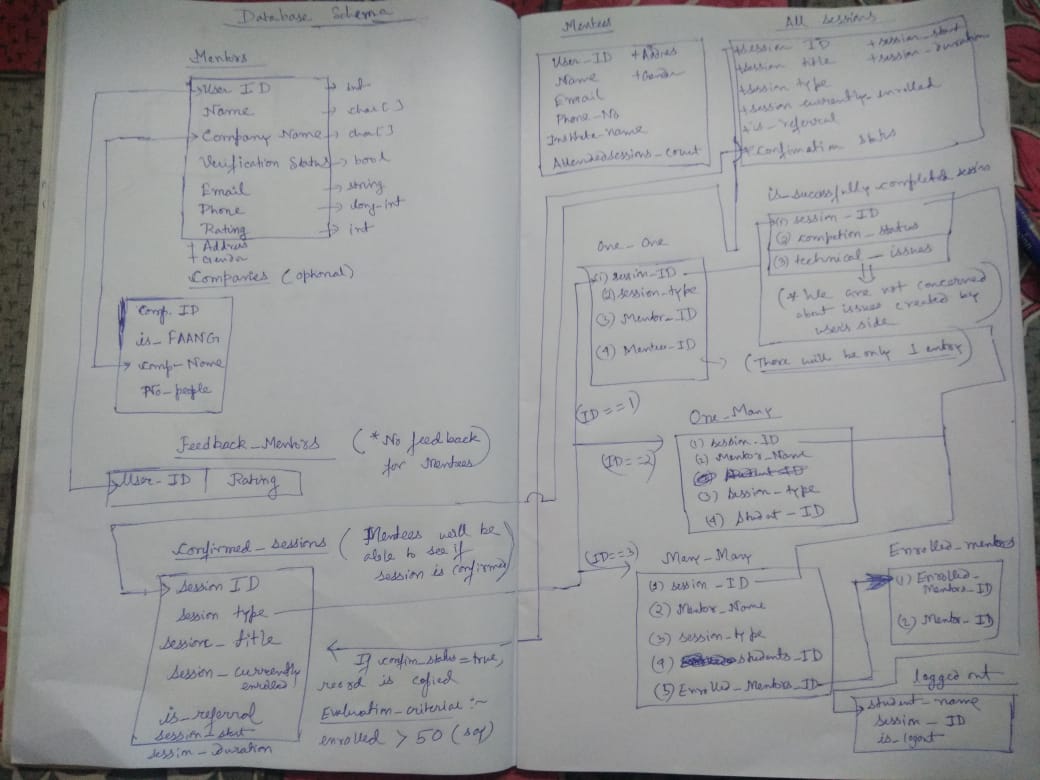 Database Schema
Mentors
User ID → int
Name → char[]
Company Name → char[]
Verification Status → bool
Email → string
Phone → long-int
Rating → int
+ Address
+ Gender
Companies (optional)
Comp. ID
is_FAANG
comp-Name
No-people
Feedback_Mentors (*No feedback
for Mentees)
User-ID | Rating
Confirmed_sessions (Mentees will be
able to see if
session is confirmed)
Session ID
Session type
session_title
Session_currently
enrolled
is_referral
session_start
session_duration
If confirm_status=true,
record is copied
Evaluation_criteria :-
enrolled > 50 (say)
Mentees
User_ID +Addres
Name +Gender
Email
Phone-No
Institute-name
Attendedsessions_count
All sessions
+session ID +session_start
+session title +session_duration
+session type
+session currently_enrolled
+is_referral
* Confirmation status
is_sucessfully_completed session
(1) session_ID
(2) completion_status
(3) technical_issues
(* We are not concerned
about issues created by
user's side)
One_One
(1) session_ID
(2) session-type
(3) Mentor_ID
(4) Mentee_ID
(There will be only 1 entry)
(ID==1)
(ID==2)
One_Many
(1) session_ID
(2) Mentor_Name
(3) Session-type
(4) Student_ID
(ID==3)
Many_Many
(1) session_ID
(2) Mentor_Name
(3) session-type
(4) students_ID
(5) Enrolled_Mentors_ID
Enrolled_mentors
(1) Enrolled_
Mentors_ID
(2) Mentor_ID
logged out
student_name
session_ID
is_logout